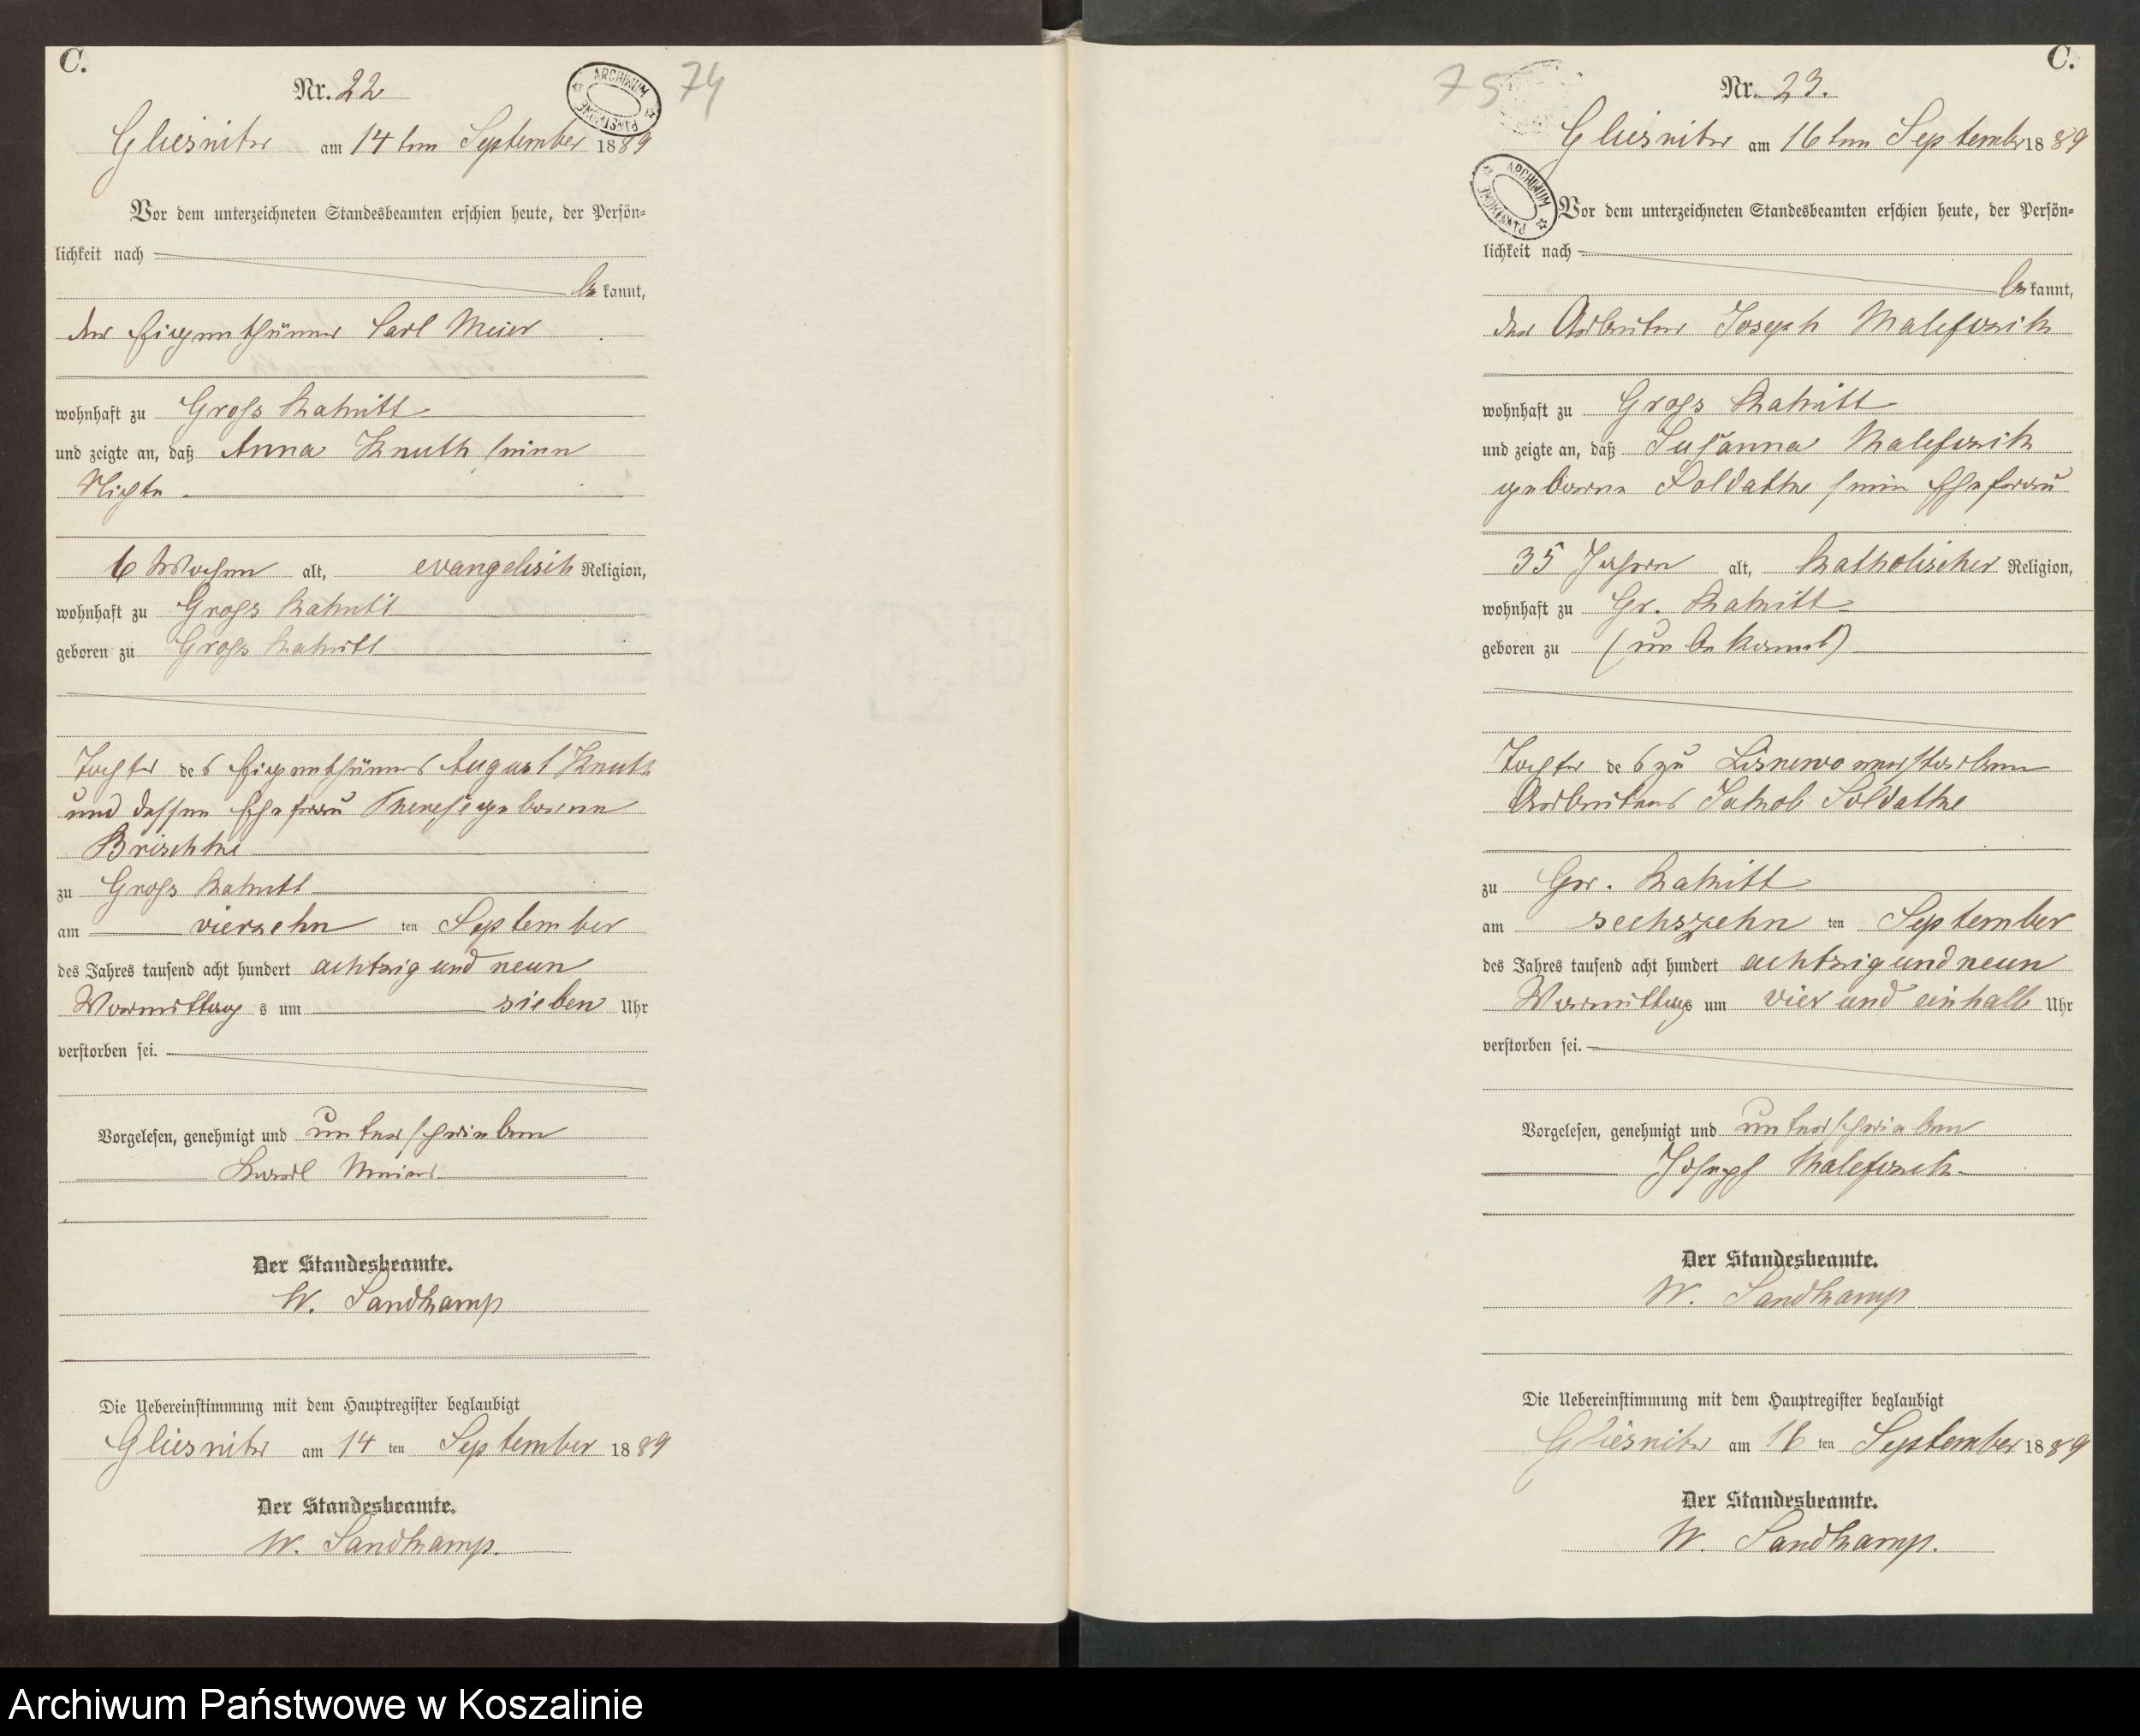 C.
Nr. 22
ARCHIWUM PAŃSTWOWE
74
Gliesnitz am 14 ten September 1889
Vor dem unterzeichneten Standesbeamten erschien heute, der Persön=
lichkeit nach
be kannt,
der Eigenthümer Carl Meier
wohnhaft zu Gross
und zeigte an, daß Anna Knuth seine
Nichte
6 Wochen alt, evangelisch Religion,
wohnhaft zu Gross
geboren zu Gross
Tochter des Eigenthümers August Knuth
und dessen Ehefrau Therese geborene
Brischke
zu Gross
am vierzehn ten September
des Jahres tausend acht hundert achtzig und neun
Vormittag s um sieben Uhr
verstorben sei.
Vorgelesen, genehmigt und unterschrieben
Karl Meier
Der Standesbeamte.
W. Sandkamp
Die Uebereinstimmung mit dem Hauptregister beglaubigt
Gliesnitz am 14 ten September 1889
Der Standesbeamte.
W. Sandkamp.
C.
75
Nr. 23.
Gliesnitz am 16 ten September 1889
ARCHIWUM PAŃSTWOWE
Vor dem unterzeichneten Standesbeamten erschien heute, der Persön=
lichkeit nach
be kannt,
der Arbeiter Joseph
wohnhaft zu Gross
und zeigte an, daß Susanna
geborene Soldatke seine Ehefrau
35 Jahre alt, katholischer Religion,
wohnhaft zu Gr.
geboren zu (unbekannt)
Tochter des zu Lisnewo verstorbenen
Arbeiters Jakob Soldatke
zu Gr.
am sechszehn ten September
des Jahres tausend acht hundert achtzig und neun
Vormittags um vier und einhalb Uhr
verstorben sei.
Vorgelesen, genehmigt und unterschrieben
Joseph
Der Standesbeamte.
W. Sandkamp
Die Uebereinstimmung mit dem Hauptregister beglaubigt
Gliesnitz am 16 ten September 1889
Der Standesbeamte.
W. Sandkamp.
Archiwum Państwowe w Koszalinie